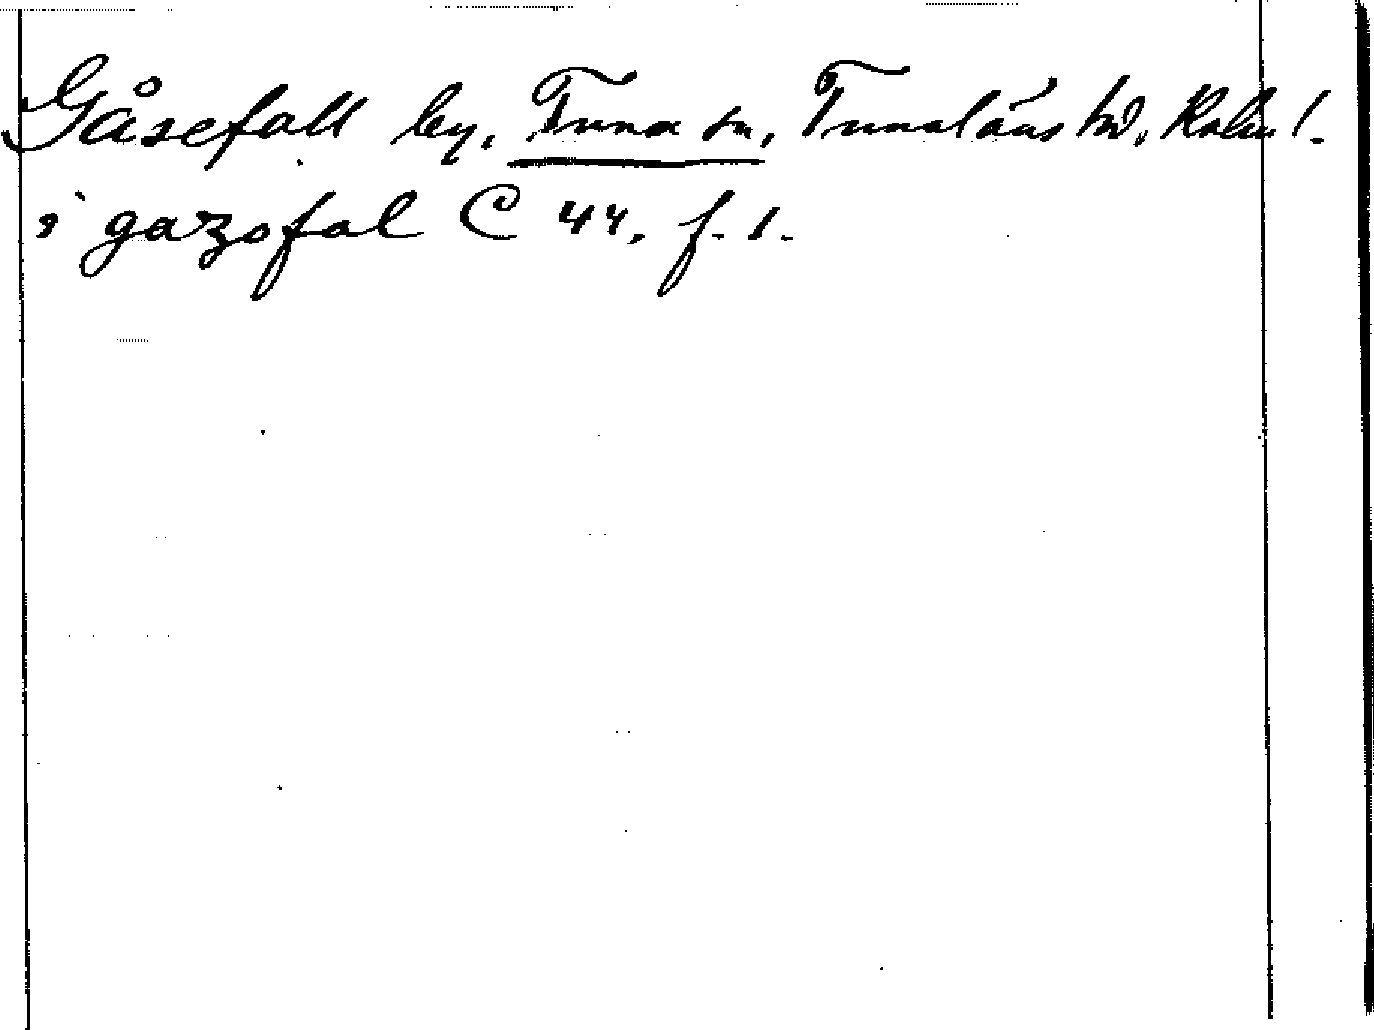 Gåsefall by, Tuna sn, Tunaläns hd. Kalm l.
i gazofal C 44, f. 1.